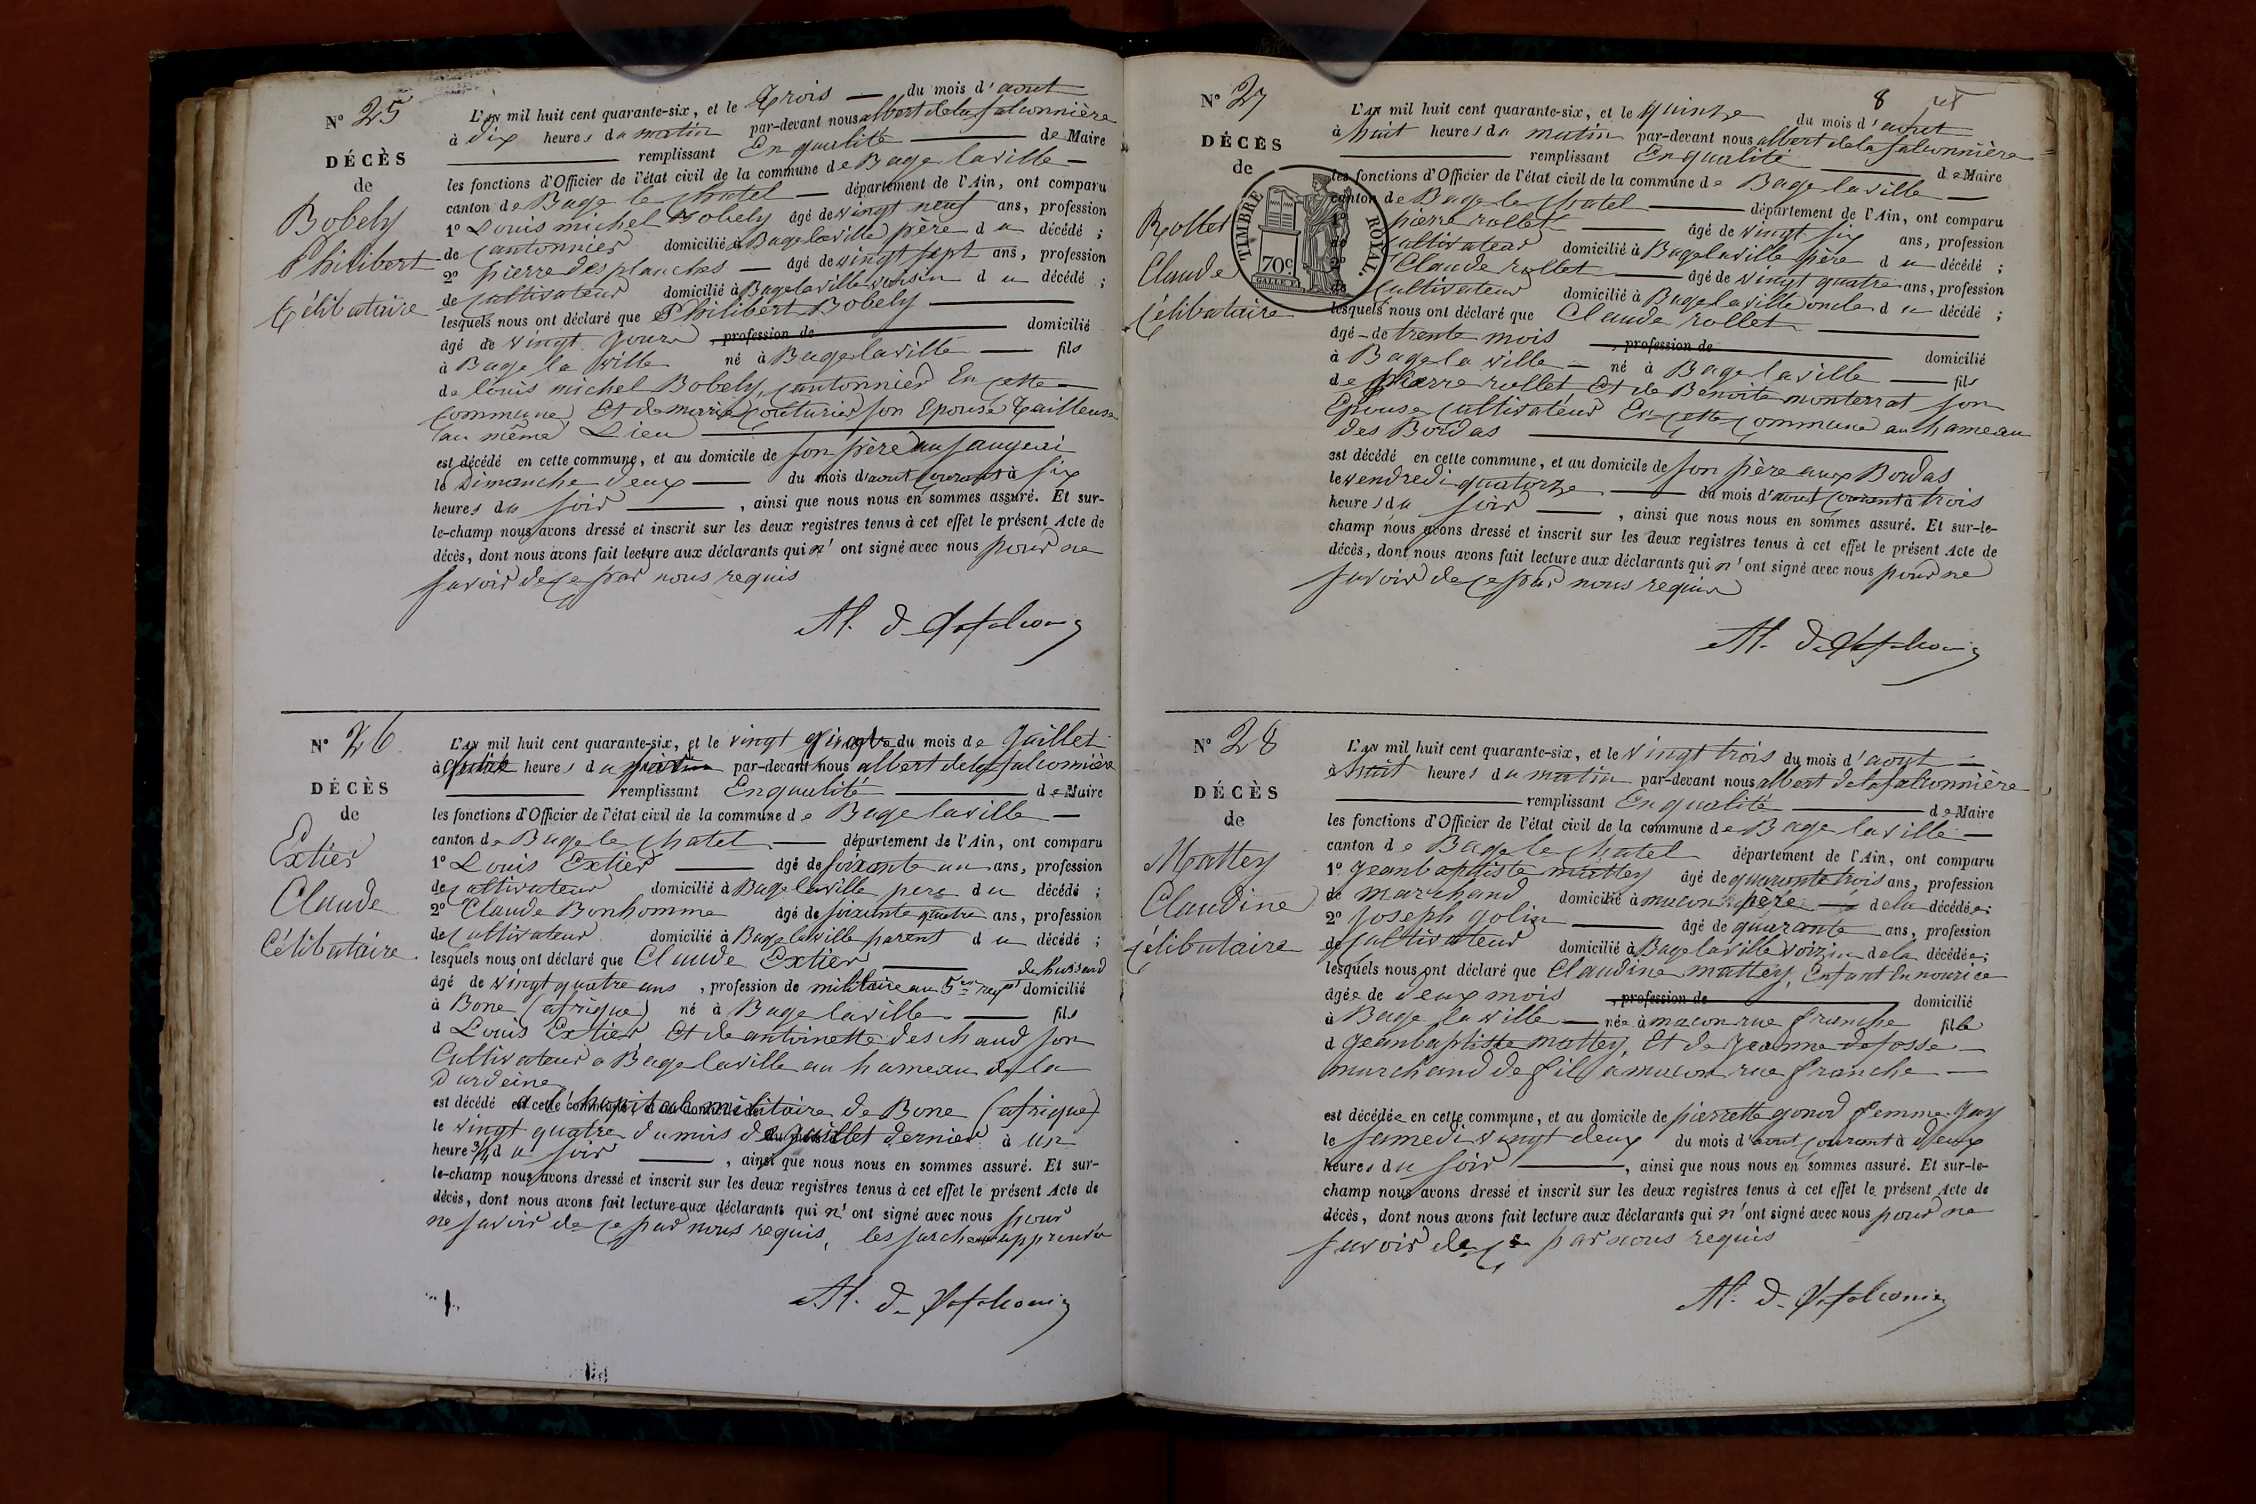 N° 25
DÉCÈS
de
Bobely
Philibert
Célibataire
L'AN mil huit cent quarante-six, et le trois du mois d'aout
à dix heures du matin par-devant nous albert dela falconnière
remplissant En qualité de Maire
les fonctions d'Officier de l'état civil de la commune de Bage la ville
canton de Bage le chatel département de l'Ain, ont comparu
1° Louis michel Bobely âgé de vingt neuf ans, profession
de Cantonnier domicilié à Bage laville père du décédé ;
2° pierre desplanches âgé de vingt sept ans, profession
de Cultivateur domicilié à Bage laville voisin du décédé ;
lesquels nous ont déclaré que Philibert Bobely
âgé de vingt jours profession de domicilié
à Bage la ville né à Bage laville fils
de louis michel Bobely, cantonnier En cette
Commune Et de marie Couturier son Epouse tailleuse
au même Lieu
est décédé en cette commune, et au domicile de son père au
le Dimanche deux du mois d'aout courant à six
heures du soir , ainsi que nous nous en sommes assuré. Et sur-
le-champ nous avons dressé et inscrit sur les deux registres tenus à cet effet le présent Acte de
décès, dont nous avons fait lecture aux déclarants qui n' ont signé avec nous pour ne
savoir de ce par nous requis
N° 26
DÉCÈS
de
Extier
Claude
Célibataire
L'AN mil huit cent quarante-six, et le vingt du mois de Juillet
à heures du par-devant nous albert dela falconnière
remplissant En qualité de Maire
les fonctions d'Officier de l'état civil de la commune de Bage laville
canton de Bage le chatel département de l'Ain, ont comparu
1° Louis Extier âgé de soixante un ans, profession
de cultivateur domicilié à Bage laville pere du décédé ;
2° Claude Bonhomme âgé de soixante quatre ans, profession
de Cultivateur domicilié à Bage laville parent du décédé ;
lesquels nous ont déclaré que Claude Extier de hussard
âgé de vingt quatre ans , profession de militaire au 5eme regt domicilié
à Bone (afrique) né à Bage laville fils
d Louis Extier Et de antoinette deschaud son
Cultivateur a Bage laville au hameau de la
Dardeine
est décédé en cette commune a l'hopital militaire de Bone (afrique)
le vingt quatre du mois de juillet dernier à un
heure 3/4 du soir , ainsi que nous nous en sommes assuré. Et sur-
le-champ nous avons dressé et inscrit sur les deux registres tenus à cet effet le présent Acte de
décès, dont nous avons fait lecture aux déclarants qui n' ont signé avec nous pour
ne savoir de ce par nous requis, les
8
N° 27
DÉCÈS
de
Rollet
Claude
Célibataire
TIMBRE ROYAL.
70c
L'AN mil huit cent quarante-six, et le quinze du mois d'aout
à huit heures du matin par-devant nous albert dela falconnière
remplissant En qualité de Maire
les fonctions d'Officier de l'état civil de la commune de Bage laville
canton de Bage le chatel département de l'Ain, ont comparu
1° pierre rollet âgé de vingt six ans, profession
de cultivateur domicilié à Bage laville père du décédé ;
2° Claude rollet âgé de vingt quatre ans, profession
de Cultivateur domicilié à Bage laville oncle du décédé ;
lesquels nous ont déclaré que Claude rollet
âgé de trente mois , profession de domicilié
à Bage la ville né à Bage laville fils
de pierre rollet Et de Benoite monterrat son
Epouse Cultivateur En cette Commune au hameau
des Bordas
est décédé en cette commune, et au domicile de son père aux Bordas
le vendredi quatorze du mois d'aout courant à trois
heures du soir , ainsi que nous nous en sommes assuré. Et sur-le-
champ nous avons dressé et inscrit sur les deux registres tenus à cet effet le présent Acte de
décès, dont nous avons fait lecture aux déclarants qui n' ont signé avec nous pour ne
savoir de ce par nous requis
N° 28
DÉCÈS
de
Mattey
Claudine
Célibataire
L'AN mil huit cent quarante-six, et le vingt trois du mois d'aout
à huit heures du matin par-devant nous albert dela falconnière
remplissant En qualité de Maire
les fonctions d'Officier de l'état civil de la commune de Bage laville
canton de Bage le chatel département de l'Ain, ont comparu
1° Jean baptiste mattey âgé de quarante trois ans, profession
de marchand domicilié à macon père de la décédée ;
2° Joseph Golin âgé de quarante ans, profession
de Cultivateur domicilié à Bage laville voisin de la décédée ;
lesquels nous ont déclaré que Claudine mattey, Enfant En nourice
âgée de deux mois , profession de domicilié
à Bage la ville née à macon rue franche fille
d Jean baptiste mattey, Et de Jeanne defosse
marchand de fil a macon rue franche
est décédée en cette commune, et au domicile de pierrette gonod femme Jay
le samedi vingt deux du mois d'aout courant à deux
heures du soir , ainsi que nous nous en sommes assuré. Et sur-le-
champ nous avons dressé et inscrit sur les deux registres tenus à cet effet le présent Acte de
décès, dont nous avons fait lecture aux déclarants qui n' ont signé avec nous pour ne
savoir de ce par nous requis